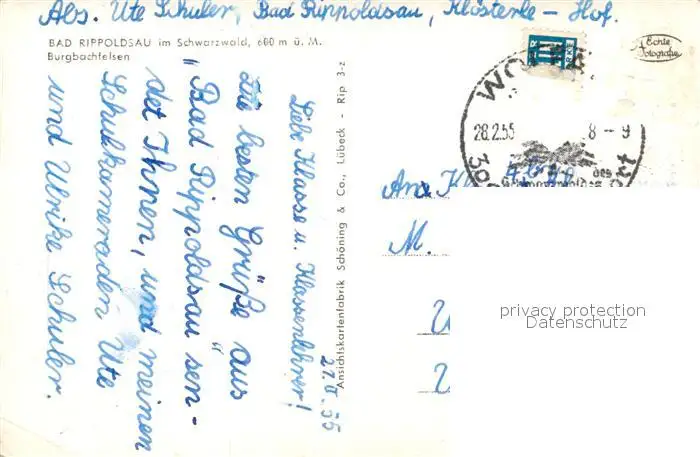 Abs. Ute Schuler, Bad Rippoldsau, Klösterle-Hof.
BAD RIPPOLDSAU im Schwarzwald, 600 m ü. M.
Burgbachfelsen
Echte
Fotografie
27.II.55
Liebe Klasse u. Klassenlehrer!
Die besten Grüße aus
"Bad Rippoldsau" sen-
det Ihnen, und meinen
Schulkameraden Ute
und Ulrike Schuler.
Ansichtskartenfabrik Schöning & Co., Lübeck - Rip 3-z
WO
28.2.55
8-9
des
An
M.
privacy protection
Datenschutz